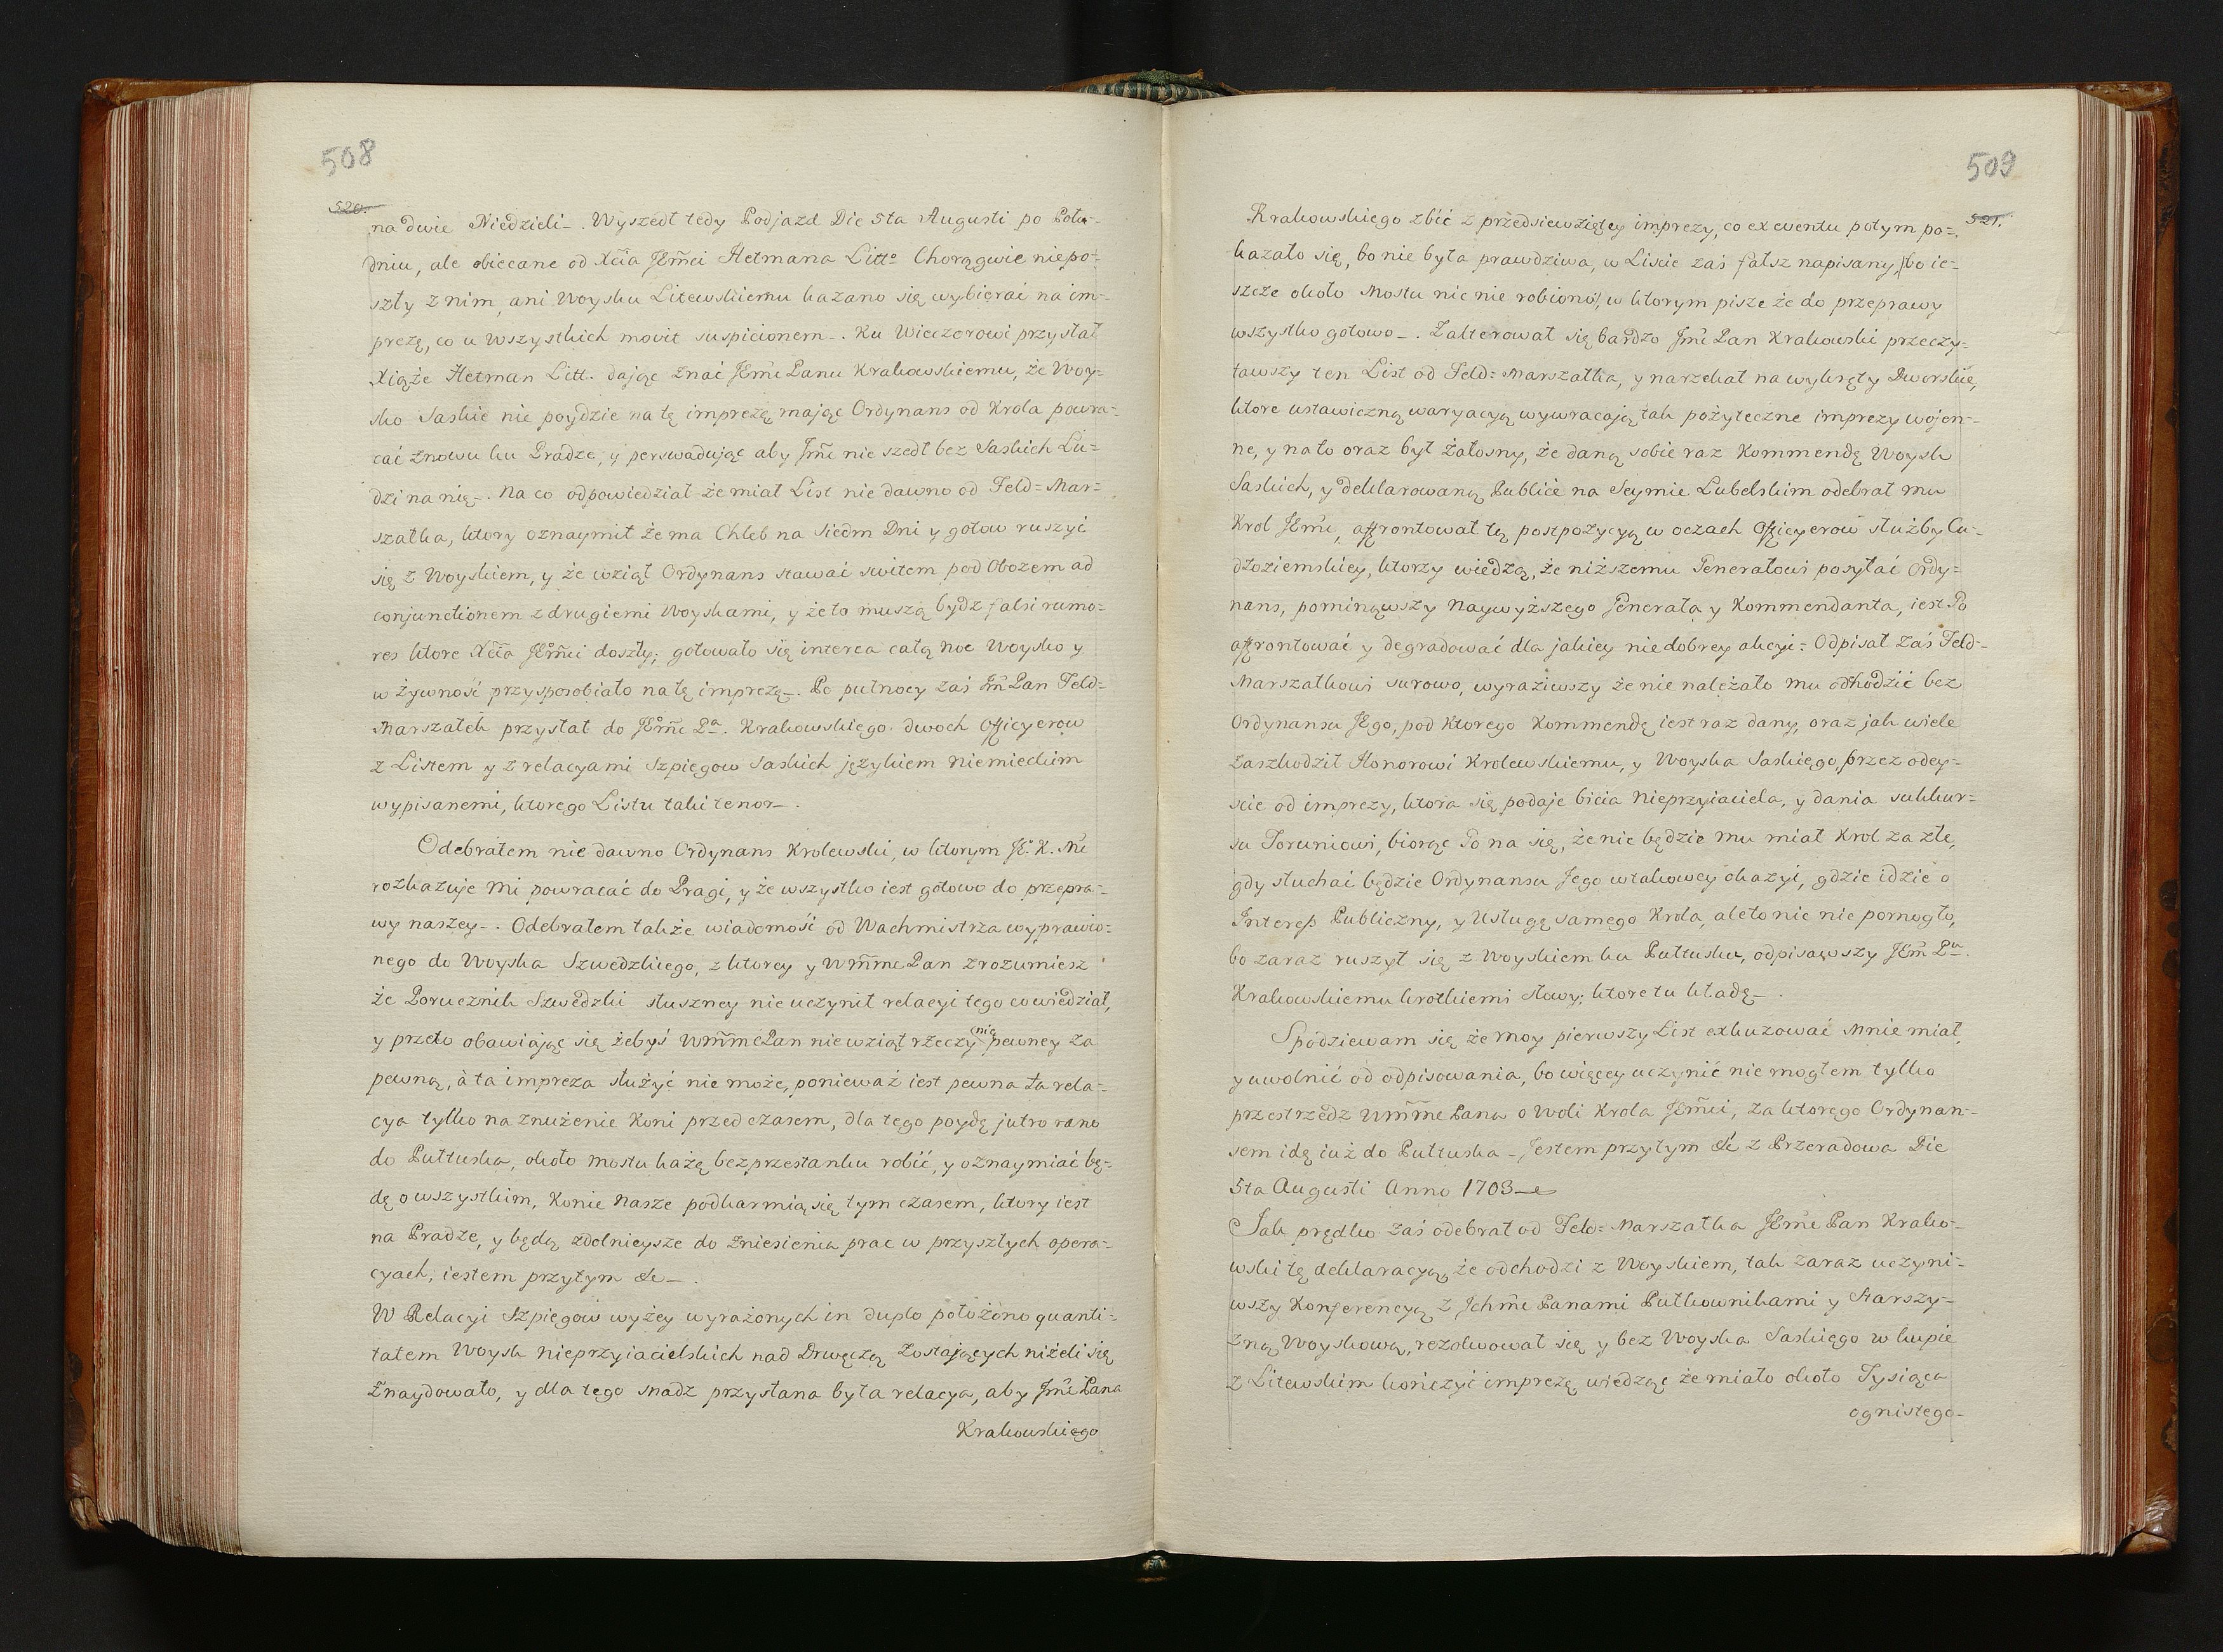 508
520.
na dwie Niedzieli_. Wyszedł tedy Podjazd Die 5ta Augusti po Połu-
dniu, ale obiecane od Xcia JEmci Hetmana Litto Chorągwie niepo-
szły z nim, ani Woysku Litewskiemu kazano się wybierać na im-
prezę, co u Wszystkich movit suspicionem_. Ku Wieczorowi przysłał
Xiąże Hetman Litt. dając znać JEmci Panu Krakowskiemu, że Woy-
sko Saskie nie poydzie na tę imprezę mając Ordynans od Krola powra-
cać znowu ku Pradze, y perswadując aby Jmć nie szedł bez Saskich Lu=
dzi na nię_. Na co odpowiedział że miał List nie dawno od Feld=Mar=
szałka, ktory oznaymił że ma Chleb na Siedm Dni y gotow ruszyć
się z Woyskiem, y że wziął Ordynans stawać switem pod Obozem ad
conjunctionem z drugiemi Woyskami, y że to muszą bydz falsi rumo=
res ktore Xcia JEmci doszły; gotowało się interea całą noc Woysko y
w żywność przysposobiało na tę imprezę_. Po pułnocy zaś Jm Pan Feld=
Marszałek przysłał do JEmci Pa. Krakowskiego dwoch Officyerow
z Listem y z relacyami Szpiegow Saskich językiem niemieckim
wypisanemi, ktorego Listu taki tenor_.
Odebrałem nie dawno Ordynans Krolewski, w ktorym JE. K. Mć
rozkazuje mi powracać do Pragi, y że wszystko iest gotowo do przepra=
wy naszey_. Odebrałem także wiadomość od Wachmistrza wyprawio=
nego do Woyska Szwedzkiego, z ktorey y WmmePan zrozumiesz
że Porucznik Szwedzki słuszney nie uczynił relacyi tego co wiedział,
y przeto obawiając się żebyś WmmePan nie wziął rzeczy nie pewney za
pewną, à ta impreza służyć nie może, ponieważ iest pewna ta rela=
cya tylko na znużenie Koni przed czasem, dla tego poydę jutro rano
do Pułtuska, około mostu każę bez przestanku robić, y oznaymiać bę=
dę o wszystkim, Konie nasze podkarmią się tym czasem, ktory iest
na Pradze, y będą zdolnieysze do zniesienia prac w przyszłych opera=
cyach, iestem przytym &c_.
W Relacyi Szpiegow wyżey wyrażonych in duplo położono quanti=
tatem Woysk nieprzyiacielskich nad Drwęczą Zostających niżeli się
Znaydowało, y dla tego snadz przysłana była relacya, aby Jmci Pana
Krakowskiego
509
521.
Krakowskiego zbić z przedsiewziętey imprezy, co ex eventu potym po=
kazało się, bo nie była prawdziwa, w Liscie zaś fałsz napisany, (bo ie=
szcze około Mostu nic nie robiono), w ktorym pisze że do przeprawy
wszystko gotowo_. Zalterował się bardzo Jmć Pan Krakowski przeczy=
tawszy ten List od Feld=Marszałka, y narzekał na wykręty Dworskie,
ktore ustawiczną waryacyą wywracają tak pożyteczne imprezy wojen=
ne, y na to oraz był żałosny, że daną sobie raz Kommendę Woysk
Saskich, y deklarowaną Publicè na Seymie Lubelskim odebrał mu
Krol JEmć, affrontował tą postpozycyą w oczach Officyerow służby Cu=
dzoziemskiey, ktorzy wiedzą, że niższemu Generałowi posyłać Ordy=
nans, pominąwszy Naywyższego Generała y Kommendanta, iest Go
affrontować y degradować dla jakiey niedobrey akcyi: Odpisał zaś Feld=
Marszałkowi surowo, wyraziwszy że nie należało mu odhodzić bez
Ordynansu Jego, pod Ktorego Kommendę iest raz dany, oraz jak wiele
zaszkodził Honorowi Krolewskiemu, y Woyska Saskiego, przez odey=
scie od imprezy, ktora się podaje bicia Nieprzyiaciela, y dania sukkur=
su Toruniowi, biorąc to na się, że nie będzie mu miał Krol za złe,
gdy słuchać będzie Ordynansu Jego w takowey okazyi, gdzie idzie o
Interess Publiczny, y Usługę samego Krola, ale to nic nie pomogło,
bo zaraz ruszył się z Woyskiem ku Pułtusku, odpisawszy JEm Pu.
Krakowskiemu krotkiemi słowy; ktore tu kładę_.
Spodziewam się że moy pierwszy List exkuzować Mnie miał,
y uwolnić od odpisowania, bo więcey uczynić nie mogłem tylko
przestrzedz WmmePana o Woli Krola JEmci, za ktorego Ordynan=
sem idę iuż do Pułtuska_ Jestem przytym &c z Przeradowa Die
5ta Augusti Anno 1703_
Jak prędko zaś odebrał od Feld=Marszałka JEmć Pan Krako=
wski tę deklaracyą, że odchodzi z Woyskiem, tak zaraz uczyni=
wszy Konferencyą z Jchmć Panami Pułkownikami y Starszy=
zną Woyskową, rezolwował się y bez Woyska Saskiego w kupie
z Litewskim kończyć imprezę wiedząc że miało około Tysiąca
ognistego_